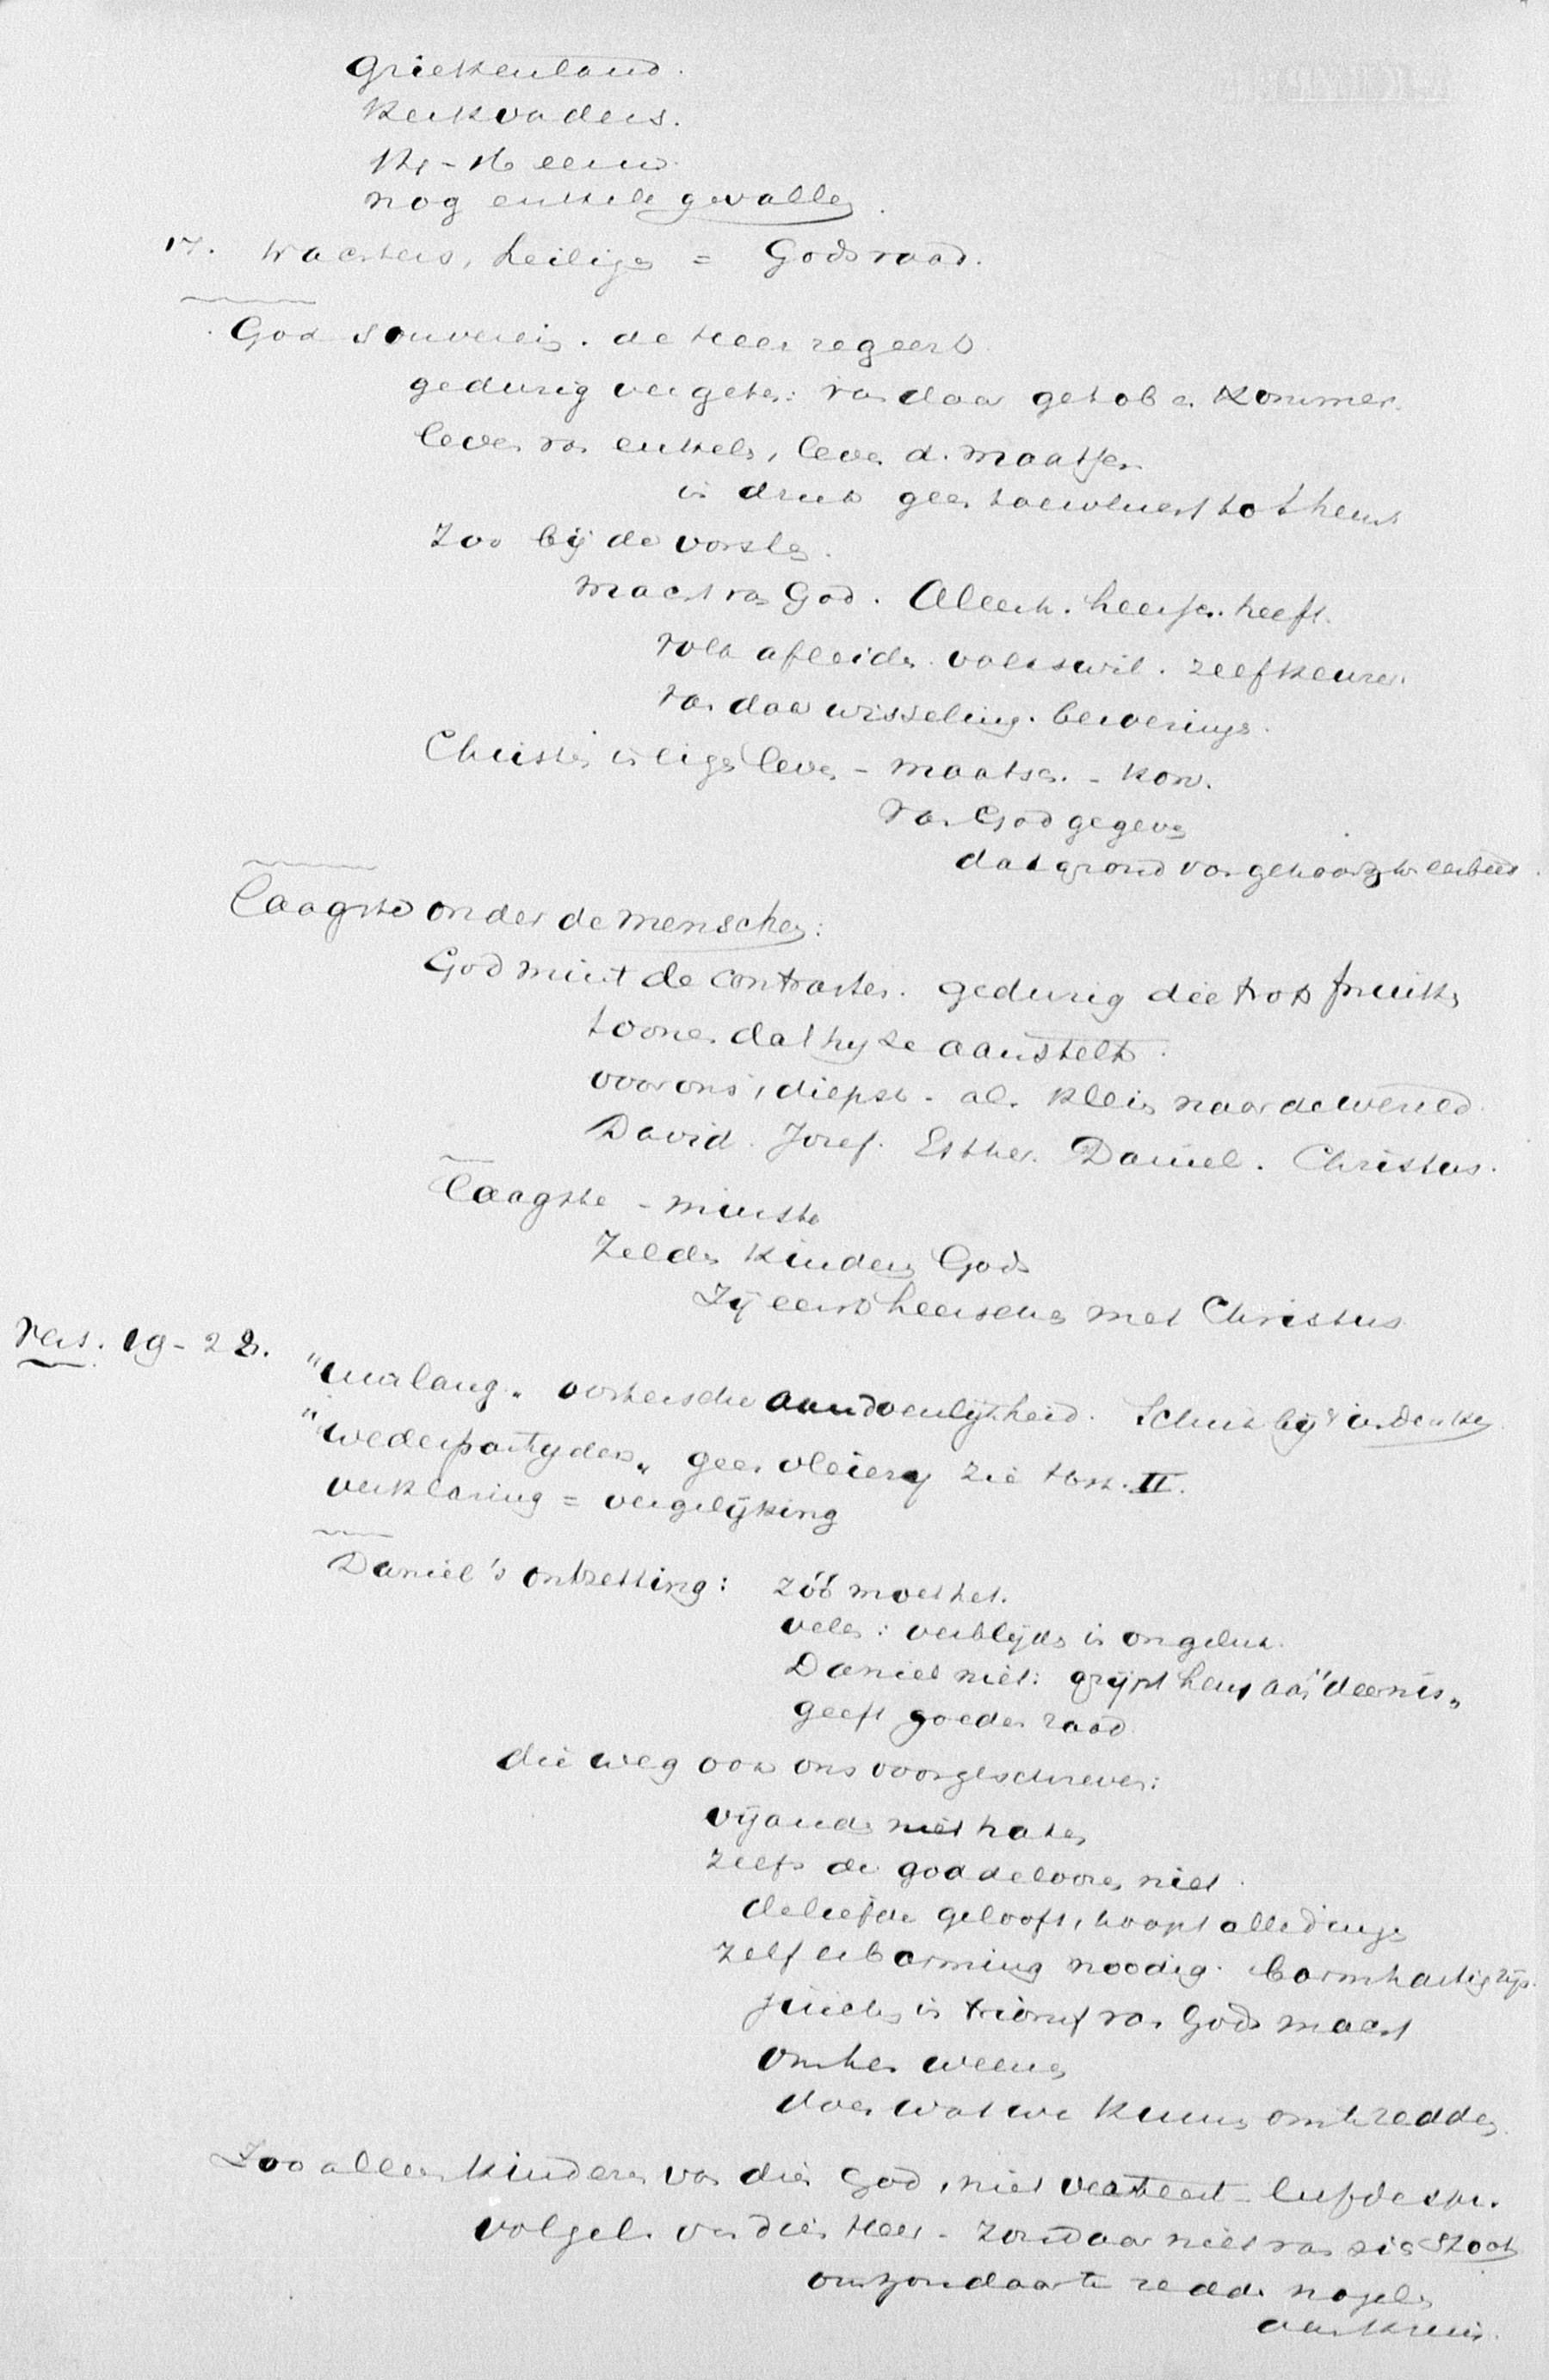 Griekenland.
Kerkvaders.
eeuw.
nog enkele gevallen.
17. Wachters, heiligen = Godsraad.
God souverein. de Heer regeert.
gedurig vergeten: van daar getob en kommer.
leven van enkelen, leven d. maatsch.
in druk geen toevlucht tot hem
Zoo bij de vorsten.
macht van God. heeft.
volk afleiden. volkswil. zelf keuren.
van daar wisseling. beroeringen.
Christen in eigen leven - maatsch. - kon.
van God gegeven
dat grond van eerbied.
Laagste onder de menschen:
God mint de contrasten. gedurig die trots fnuiken
toonen dat hij ze aanstelt.
voor ons, diepst. als klein naar de wereld.
David. Josef. Esther. Daniel. Christus.
Laagste - minste
Zelden kinderen Gods
Zij eens heerschen met Christus
Vers. 19-28.
"uur lang" oostersche aandoenlijkheid. Schuit bij in denken
"wederpartijders" geen vleierij zie Hfst. II.
verklaring = vergelijking
Daniel's ontzetting: zóó moet het.
velen: verblijden in ongeluk.
Daniel niet: grijpt hem aan "deernis"
geeft goeden raad.
die weg ook ons voorgeschreven:
vijanden niet haten
zelfs de goddeloozen niet.
de liefde gelooft, hoopt alle dingen
zelf erbarming noodig. barmhartig zijn.
juichen in triomf van Gods macht
om hen weenen
doen wat we kunnen om te redden.
Zoo alleen kinderen van dien God, niet liefde
volgel. van dien Heer - zondaar niet van zich stoot
om zondaar te redden nagelen
aan kruis.